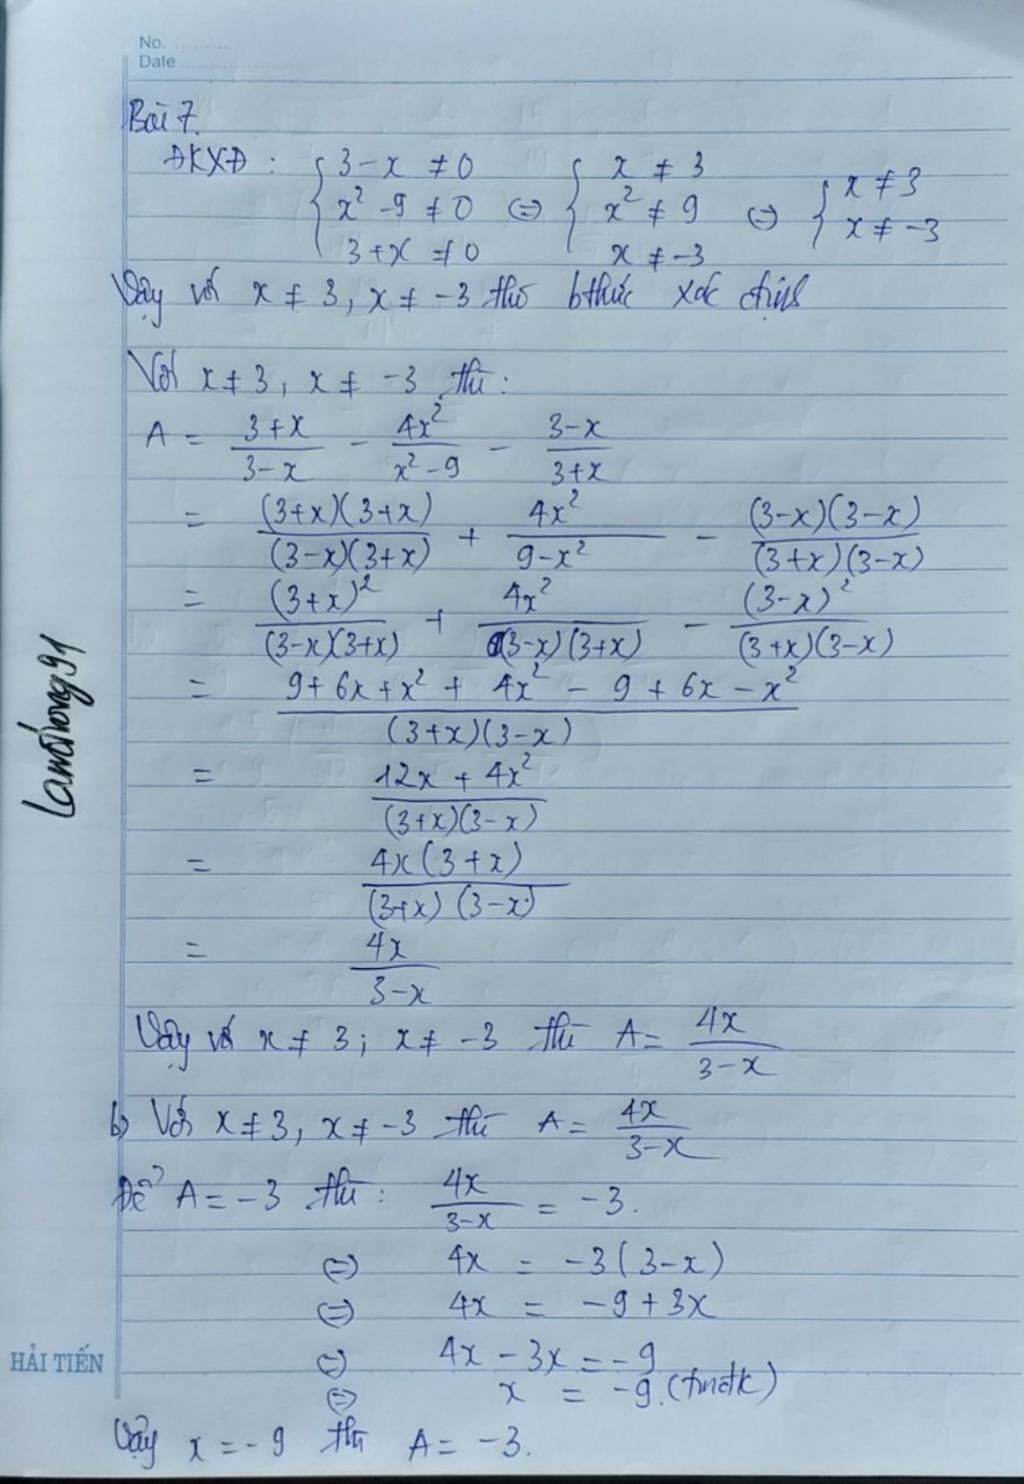 No. ..........
Date ....................
Bài 7.
ĐKXĐ : { 3 - x ≠ 0 { x ≠ 3 { x ≠ 3
x² - 9 ≠ 0 <=> x² ≠ 9 <=> x ≠ -3
3 + x ≠ 0 x ≠ -3
Vậy với x ≠ 3, x ≠ -3 thì bthức xác định
Với x ≠ 3, x ≠ -3 thì :
A = (3+x)/(3-x) - 4x²/(x²-9) - (3-x)/(3+x)
= (3+x)(3+x)/(3-x)(3+x) + 4x²/(9-x²) - (3-x)(3-x)/(3+x)(3-x)
= (3+x)²/(3-x)(3+x) + 4x²/(3-x)(3+x) - (3-x)²/(3+x)(3-x)
= (9 + 6x + x² + 4x² - 9 + 6x - x²)/(3+x)(3-x)
= (12x + 4x²)/(3+x)(3-x)
= 4x(3+x)/(3+x)(3-x)
= 4x/(3-x)
Vậy với x ≠ 3; x ≠ -3 thì A = 4x/(3-x)
b) Với x ≠ 3, x ≠ -3 thì A = 4x/(3-x)
Để A = -3 thì : 4x/(3-x) = -3.
<=> 4x = -3(3-x)
<=> 4x = -9 + 3x
<=> 4x - 3x = -9
<=> x = -9. (tmđk)
Vậy x = -9 thì A = -3.
HẢI TIẾN
lamthong91